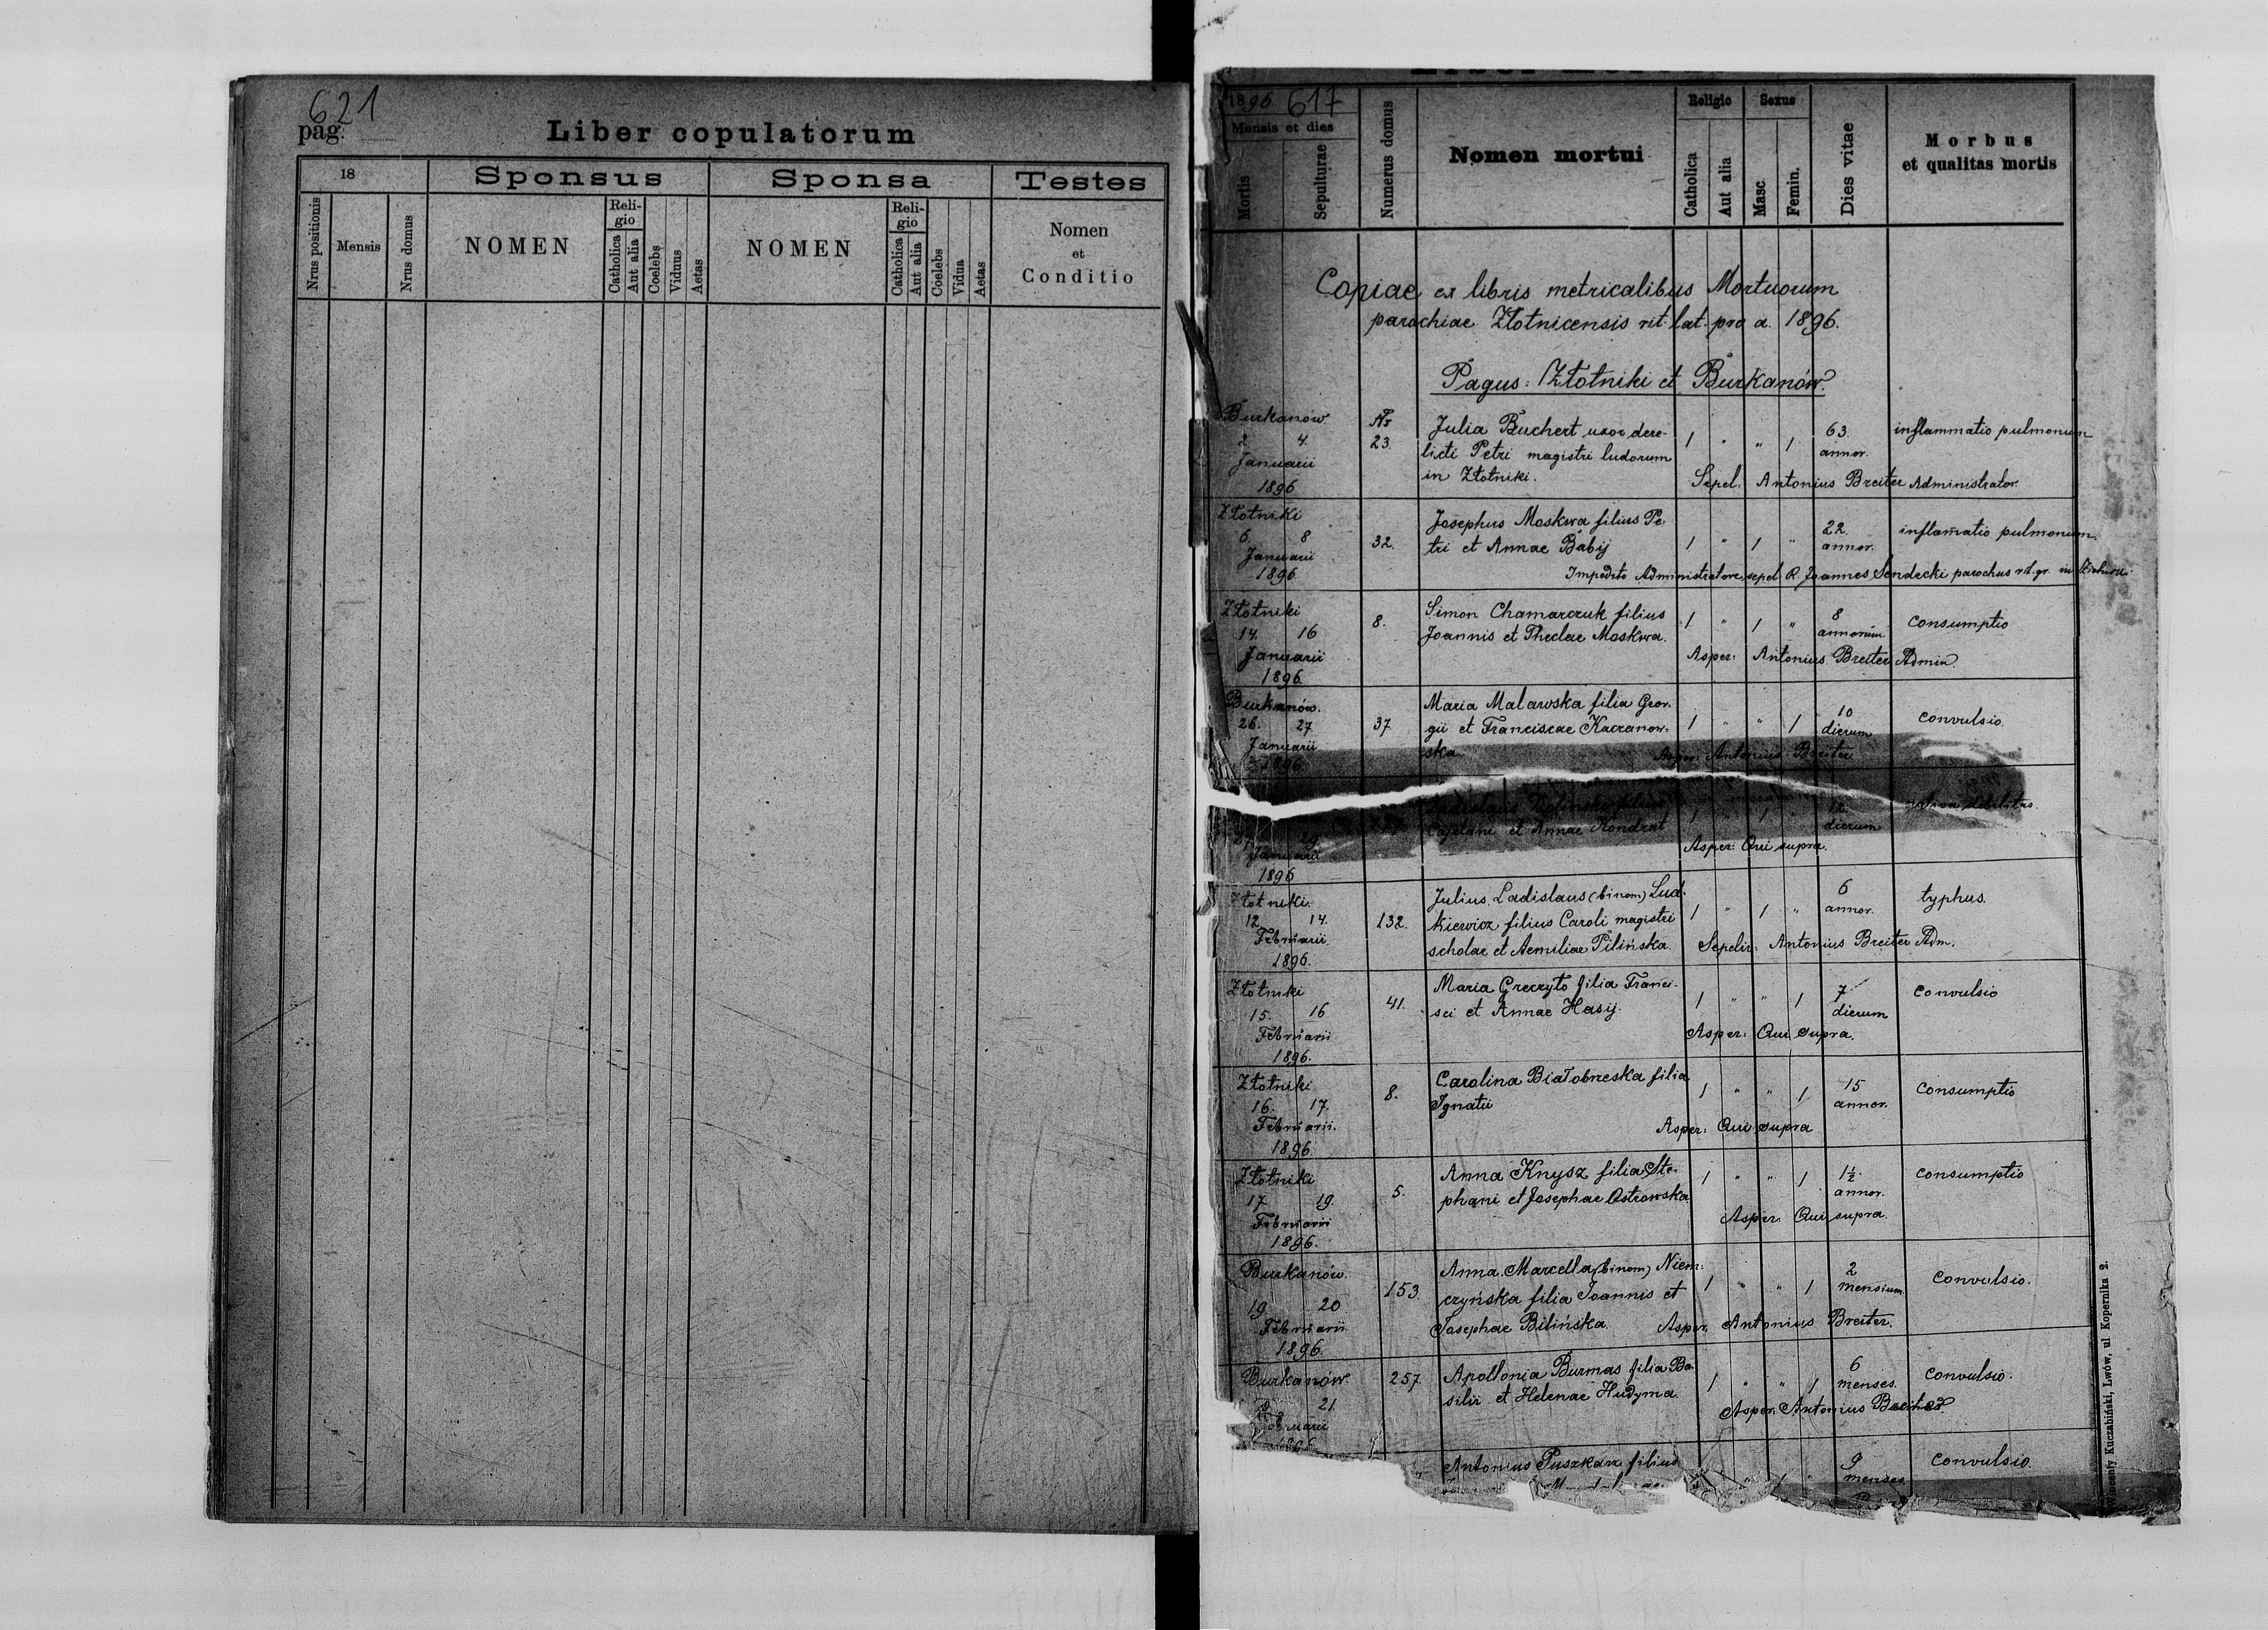 621
pag.
Liber copulatorum
18
Sponsus
Sponsa
Testes
Nrus positionis
Mensis
Nrus domus
NOMEN
Religio
Catholica
Aut alia
Coelebs
Viduus
Aetas
NOMEN
Religio
Catholica
Aut alia
Coelebs
Vidua
Aetas
Nomen
et
Conditio
1896 617
Mensis et dies
Mortis
Sepulturae
Numerus domus
Nomen mortui
Religio
Catholica
Aut alia
Sexus
Masc.
Femin.
Dies vitae
Morbus
et qualitas mortis
Copiae ex libris metricalibus Mortuorum
parochiae Złotnicensis rit. lat. pro a. 1896.
Pagus: Złotniki et Burkanów.
Burkanów Nr Julia Buchert uxor dere- 63. inflammatio pulmonum
2 4. 23. licti Petri magistri ludorum 1 " " 1 annor.
Januarii in Złotniki. Sepel. Antonius Breiter Administrator.
1896
Złotniki Josephus Moskwa filius Pe- 22 inflamatio pulmonum
6. 8 32. tri et Annae Babij 1 " 1 " annor.
Januarii
1896 Impedito Administratore sepel. R. Joannes Sendecki parochus rit. gr. in
Złotniki Simon Chamarczuk filius 8 consumptio
14. 16 8. Joannis et Theclae Moskwa. 1 " 1 " annorum
Januarii Asper: Antonius Breiter Admin.
1896.
Burkanów. Maria Malawska filia Geor- 10 convulsio
26. 27 37 gii et Franciscae Kaczanow- 1 " " 1 dierum
Januarii ska Asper: Antonius Breiter
1896.
filius 12 debilitas.
29 Cajetani et Annae Kondrat 1 " 1 " dierum
Januarii Asper: Qui supra.
1896
Złotniki. Julius Ladislaus (binom) Lud- 6 typhus.
12 14. 132. kiewicz filius Caroli magistri 1 " 1 " annor.
Februarii scholae et Aemiliae Pilińska. Sepelir: Antonius Breiter Adm.
1896.
Złotniki Maria Greczyło filia Franci- 7 convulsio
15. 16 41. sci et Annae Hasij. 1 " " 1 dierum
Februarii Asper: Qui supra.
1896.
Złotniki Carolina Białobrzeska filia 15 consumptio
16. 17. 8. Ignatii 1 " " 1 annor.
Februarii. Asper: Qui supra
1896.
Złotniki Anna Knysz filia Ste- 1½ consumptio
17 19. 5. phani et Josephae Ostrowska 1 " " 1 annor.
Februarii Asper. Qui supra.
1896.
Burkanów. Anna Marcella (binom) Niem- 2 convulsio.
19 20 153. czyńska filia Joannis et 1 " " 1 mensium.
Februarii Josephae Bilińska. Asper. Antonius Breiter.
1896.
Burkanów 257. Apollonia Burmas filia Ba- 6 convulsio.
21. silii et Helenae Hudyma. 1 " " 1 menses.
Februarii Asper. Antonius
1896
Antonius Puszkarz filius 9 convulsio.
1 " menses
Wincenty Kuczabiński, Lwów, ul Kopernika 2.